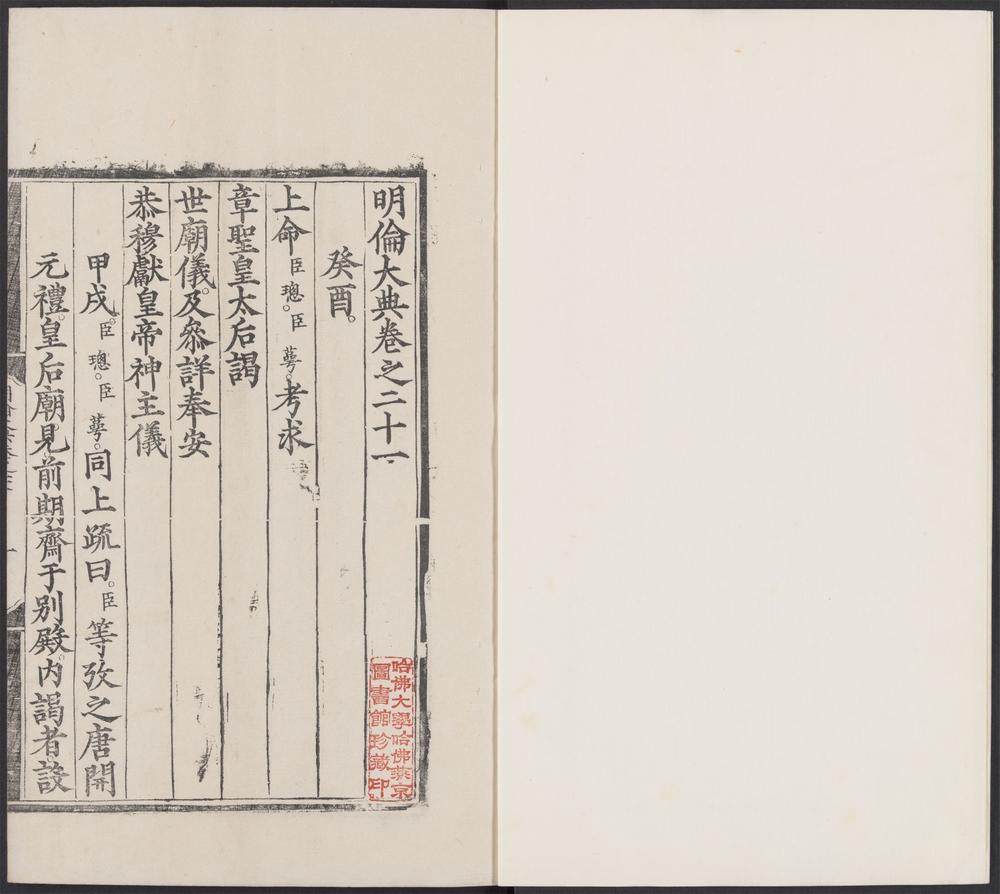 明倫大典卷之二十一
癸酉。
上命臣璁。臣萼。考求
章聖皇太后謁
世廟儀。及叅詳奉安
恭穆獻皇帝神主儀
甲戌。臣璁。臣萼。同上疏曰。臣等攷之唐開
元禮。皇后廟見。前期齋于别殿。内謁者設
哈佛大學哈佛燕京
圖書館珍藏印